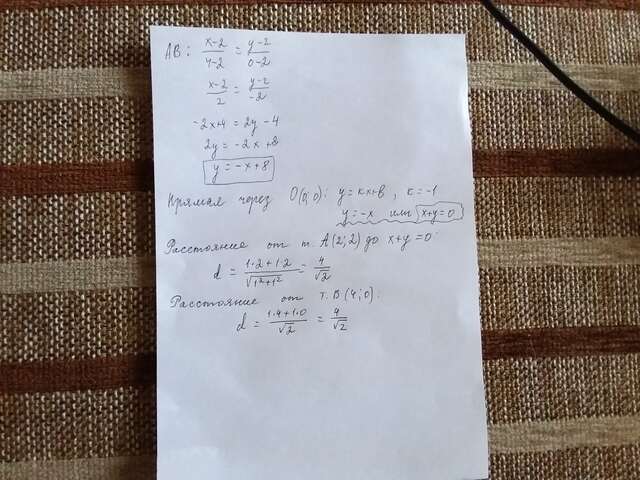 AB: (x-2)/(4-2) = (y-2)/(0-2)
(x-2)/2 = (y-2)/-2
-2x+4 = 2y-4
2y = -2x+8
y = -x+8
Прямая через O(0;0): y = kx+b, k = -1
y = -x или x+y=0
Расстояние от т. A(2;2) до x+y=0:
d = (1·2+1·2)/√(1²+1²) = 4/√2
Расстояние от т. B(4;0):
d = (1·4+1·0)/√2 = 4/√2